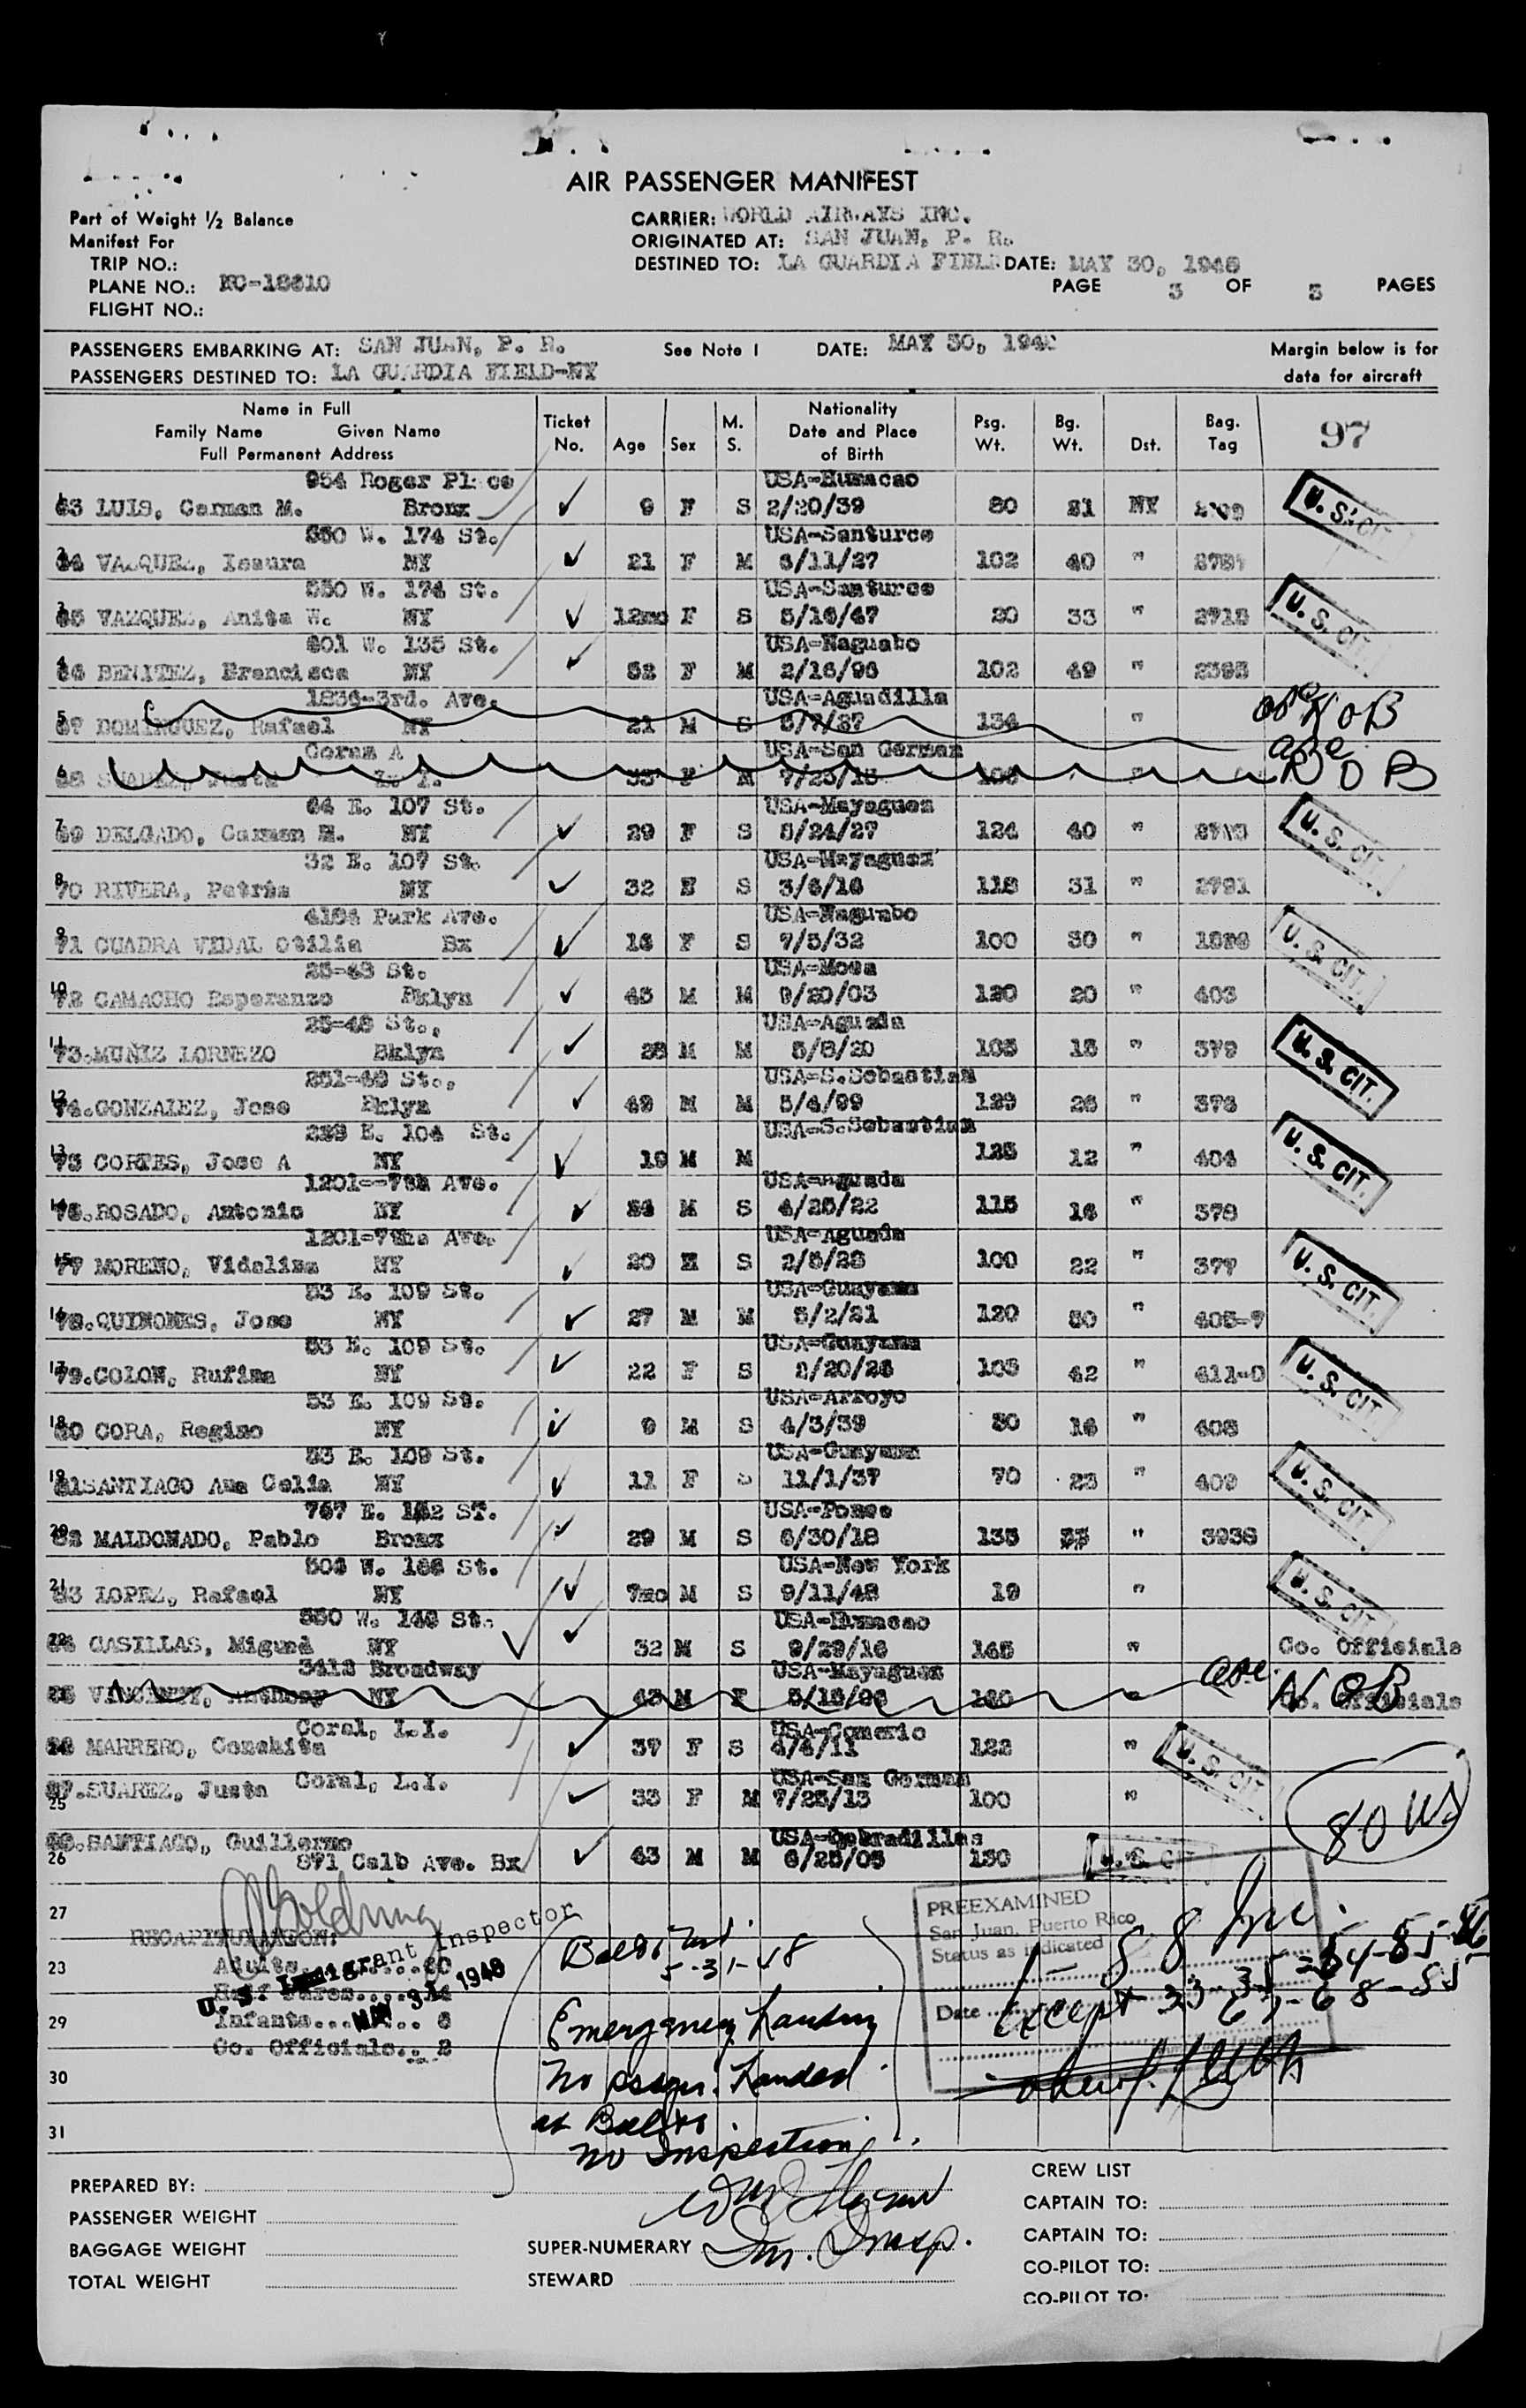 AIR PASSENGER MANIFEST
Part of Weight ½ Balance
Manifest For
TRIP NO.:
PLANE NO.: NC-18610
FLIGHT NO.:
CARRIER: WORLD AIRWAYS INC.
ORIGINATED AT: SAN JUAN, P. R.
DESTINED TO: LA GUARDIA FIELD DATE: MAY 30, 1948
PAGE 3 OF 3 PAGES
PASSENGERS EMBARKING AT: SAN JUAN, P. R. See Note 1 DATE: MAY 30, 1948
PASSENGERS DESTINED TO: LA GUARDIA FIELD-NY
Margin below is for
data for aircraft
Name in Full
Family Name Given Name
Full Permanent Address
Ticket No. Age Sex M. S. Nationality Date and Place of Birth Psg. Wt. Bg. Wt. Dst. Bag. Tag 97
954 Roger Place USA-Humacao
1 63 LUIS, Carmen M. Bronx 9 F S 2/20/39 80 21 NY U. S. CIT.
550 W. 174 St. USA-Santurce
2 64 VAZQUEZ, Isaura NY 21 F M 6/11/27 102 40 "
550 W. 174 St. USA-Santurce
3 65 VAZQUEZ, Anita W. NY 12mo F S 5/16/47 20 33 " 2713 U. S. CIT.
601 W. 135 St. USA-Naguabo
4 66 BENITEZ, Francisca NY 52 F M 2/16/96 102 49 " 2395
1836-3rd. Ave. USA-Aguadilla
5 67 DOMINGUEZ, Rafael NY 21 M S 5/7/27 134 " N O B
Corea A USA-San German
6 68 SUAREZ, Justa L. I. 33 F M 7/25/13 100 " N O B
64 E. 107 St. USA-Mayaguez
7 69 DELGADO, Carmen M. NY 29 F S 5/24/27 124 40 " U. S. CIT.
32 E. 107 St. USA-Mayaguez
8 70 RIVERA, Petrúa NY 32 F S 3/6/16 118 31 " 2791
4184 Park Ave. USA-Naguabo
9 71 CUADRA VIDAL Otilia Bx 16 F S 7/5/32 100 30 " U. S. CIT.
25-48 St. USA-Moca
10 72 CAMACHO Esperanzo Bklyn 45 M M 9/20/03 120 20 " 403
25-48 St., USA-Aguada
11 73.MUÑIZ LORNEZO Bklyn 28 M M 5/8/20 165 15 " 379 U. S. CIT.
251-49 St., USA-S.Sebastian
12 74.GONZALEZ, Jose Bklyn 49 M M 5/4/99 129 26 " 376
229 E. 104 St. USA-S.Sebastian
13 75 CORTES, Jose A NY 19 M M 125 12 " 404 U. S. CIT.
1201--7th Ave. USA-Aguada
14 76.ROSADO, Antonio NY M S 4/25/22 115 16 " 378
1201-7the Ave. USA-Aguada
15 77 MORENO, Vidalina NY 20 F S 2/5/28 100 22 " 377 U. S. CIT.
53 E. 109 St. USA-Guayama
16 78.QUINONES, Jose NY 27 M M 5/2/21 120 50 " 405-7
53 E. 109 St. USA-Guayama
17 79.COLON, Rufina NY 22 F S /20/26 105 42 " 411-0 U. S. CIT.
53 E. 109 St. USA-Arroyo
18 80 CORA, Regino NY 9 M S 4/3/39 50 16 " 408
53 E. 109 St. USA-Guayama
19 81SANTIAGO Ana Celia NY 11 F S 11/1/37 70 23 " 409 U. S. CIT.
767 E. 152 ST. USA-Ponce
20 82 MALDONADO, Pablo Bronx 29 M S 6/30/18 135 33 " 3936
504 W. 166 St. USA-New York
21 83 LOPEZ, Rafael NY 7mo M S 9/11/48 19 " U. S. CIT.
550 W. 146 St. USA-Humacao
22 84 CASILLAS, Miguel NY 32 M S 9/29/16 145 " Co. Officials
3412 Broadway USA-Mayaguez
85 VINCENTY, Anthony NY 43 M 160 " N O B Co. Officials
Coral, L.I. USA-Comerio
86 MARRERO, Conchita 37 F S 4/4/11 122 " U. S. CIT.
Coral, L.I. USA-San German
25 87.SUAREZ, Justa 33 F M 7/25/13 100 "
26 88.SANTIAGO, Guillermo USA-Quebradillas
871 Calb Ave. Bx 43 M M 6/25/05 130 U. S. CIT.
80 US
27
RECAPITULATION:
23 Adults........60
Half Fares.....14
29 Infants....... 6
Co. Officials.. 2
30
31
U. S. Immigrant Inspector
MAY 31 1948
Balto Md.
5-31-48
Emergency Landing
No pssgrs. Landed
at Balto.
No Inspection
Im. Insp.
PREEXAMINED
San Juan, Puerto Rico
Status as indicated
Date
1 - 88 Inc.
except 33-35-
67-68-85
PREPARED BY:
PASSENGER WEIGHT
BAGGAGE WEIGHT
TOTAL WEIGHT
SUPER-NUMERARY
STEWARD
CREW LIST
CAPTAIN TO:
CAPTAIN TO:
CO-PILOT TO:
CO-PILOT TO: